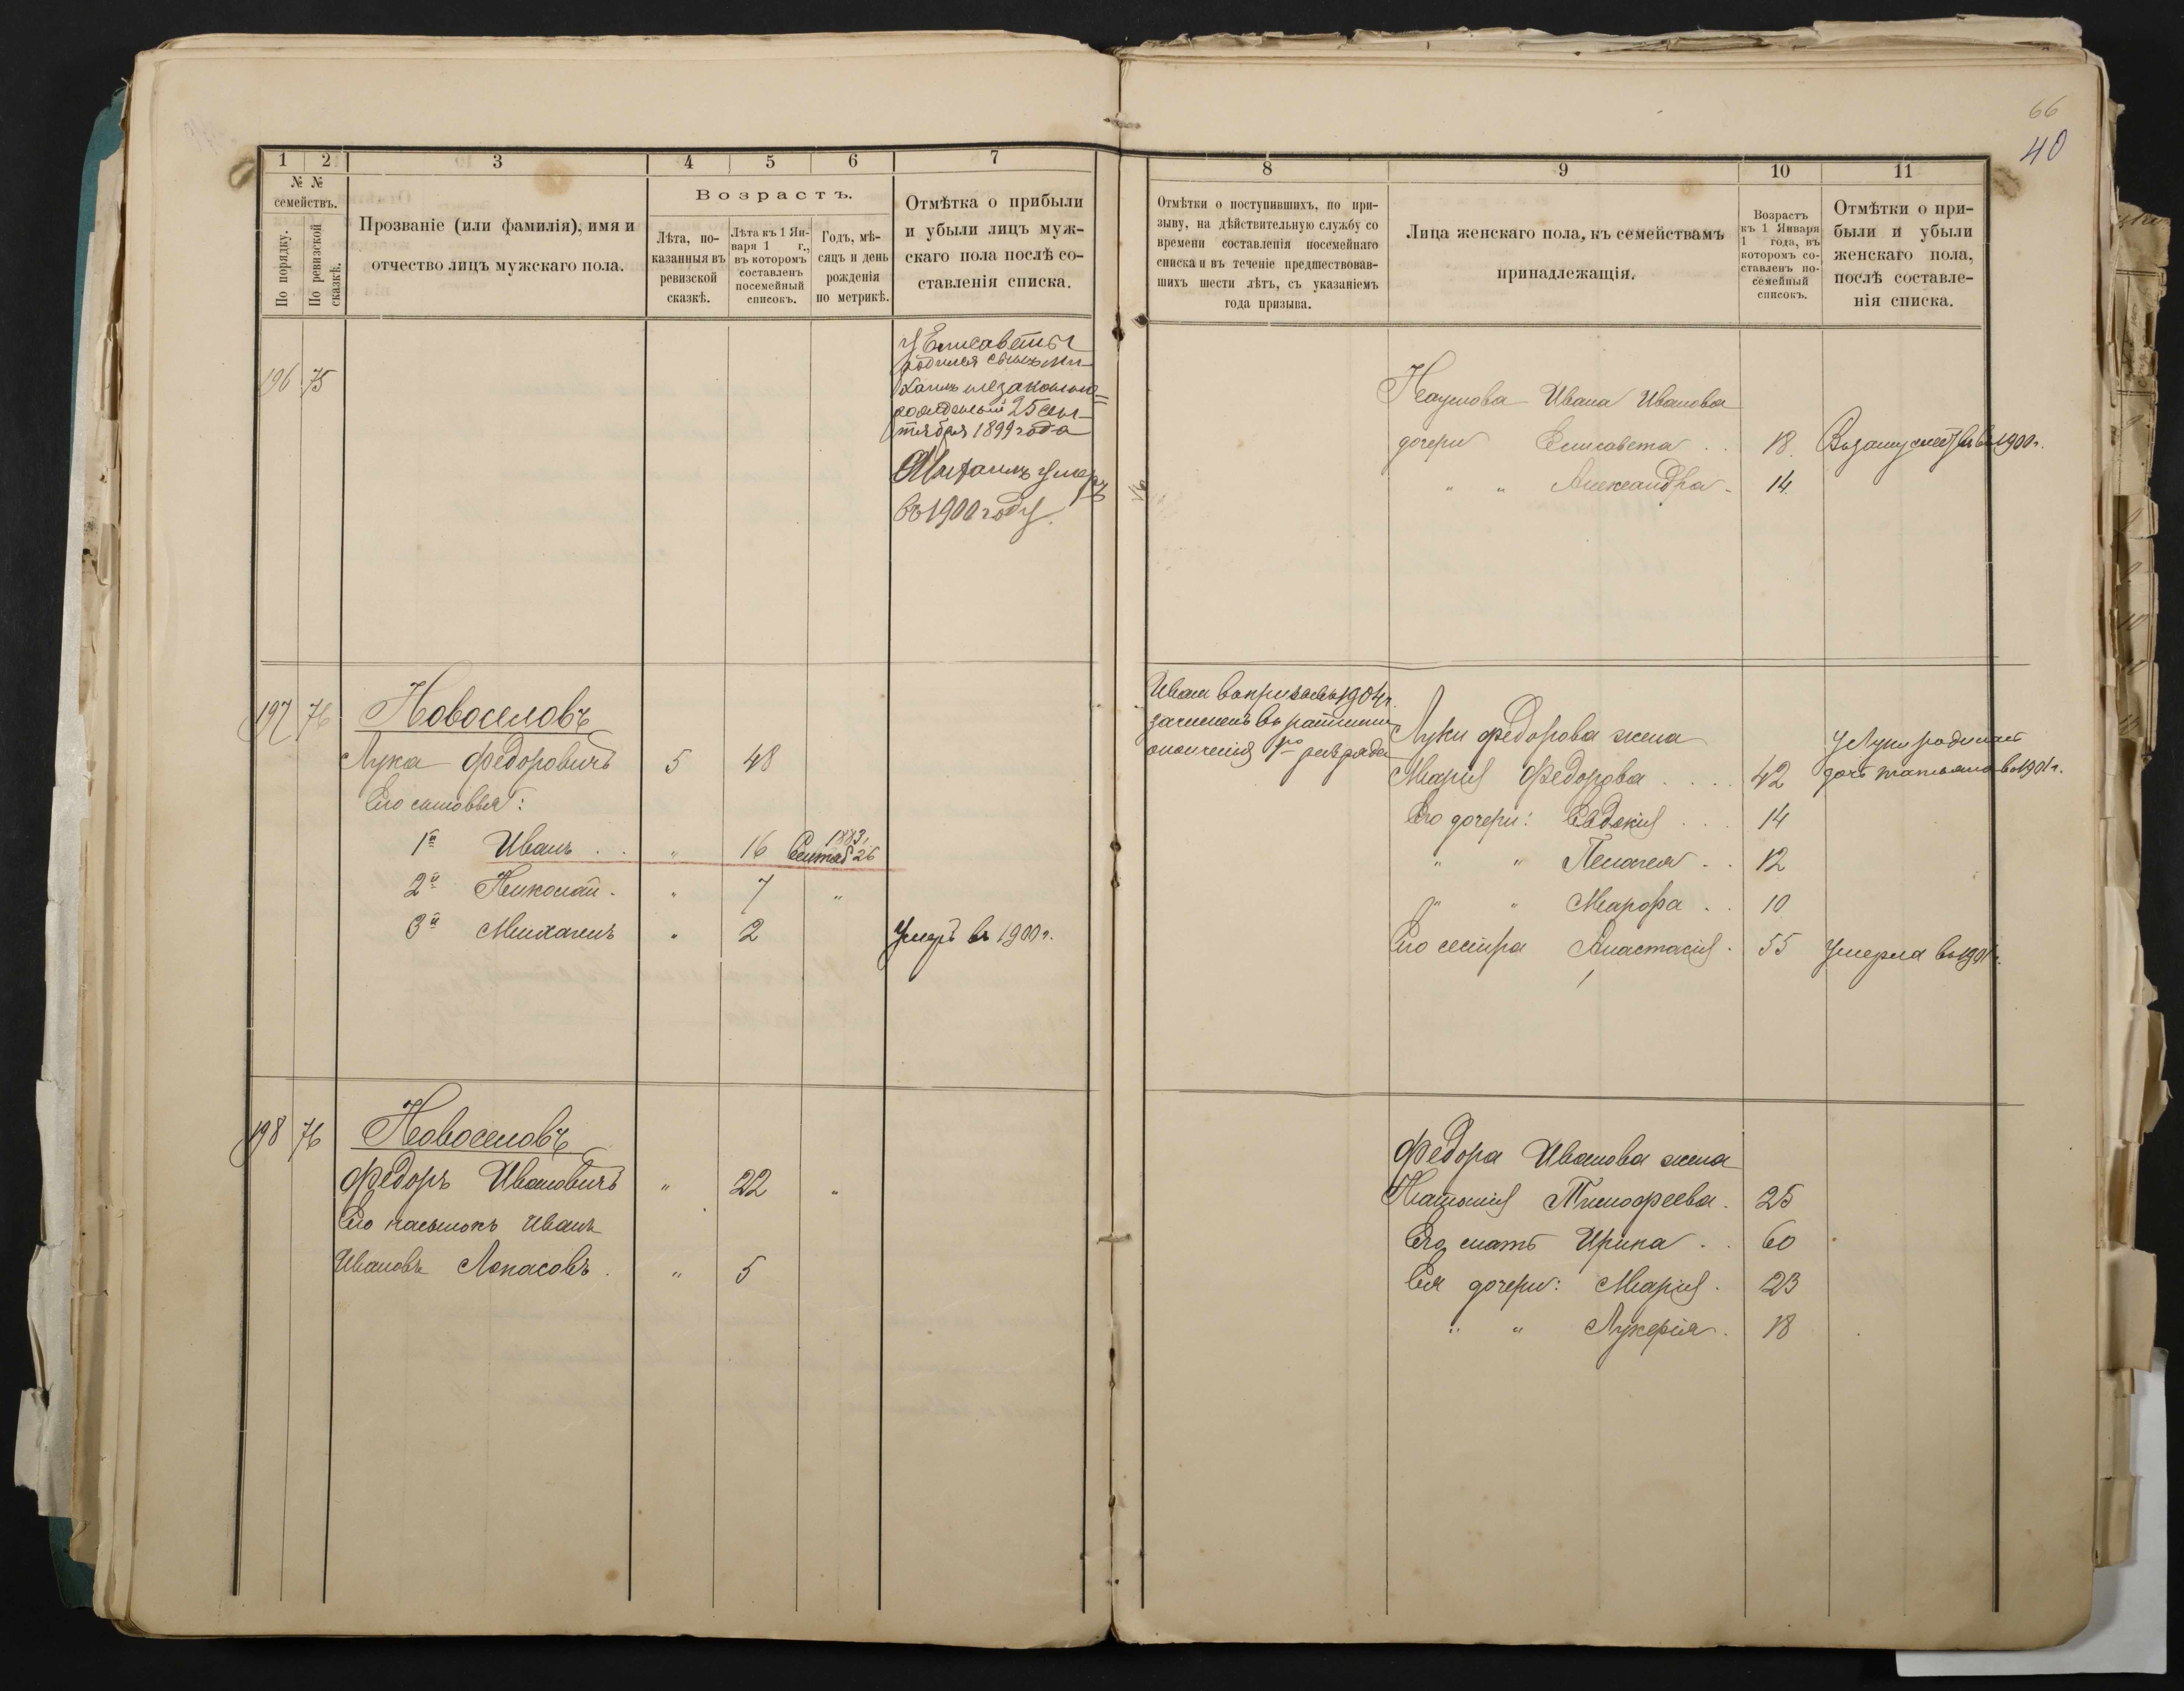 66
40
1 2 3 4 5 6 7
№ № семействъ.
По порядку.
По ревизской сказкѣ.
Прозваніе (или фамилія), имя и
отчество лицъ мужскаго пола.
Возрастъ.
Лѣта, по-
казанныя въ
ревизской
сказкѣ.
Лѣта къ 1 Ян-
варя 1 г.,
въ которомъ
составленъ
посемейный
списокъ.
Годъ, мѣ-
сяцъ и день
рожденія
по метрикѣ.
Отмѣтка о прибыли
и убыли лицъ муж-
скаго пола послѣ со-
ставленія списка.
196 75
у Елисаветы
родился сынъ Ми-
хаилъ незаконно=
рожденный 25 сен-
тября 1899 года
Михаилъ умеръ
въ 1900 году.
197 76 Новоселовъ
Лука Федоровичъ 5 48
Его сыновья:
1й Иванъ . . " 16 1883, Сентяб 26
2й Николай . " 7 "
3й Михаилъ " 2 Умеръ въ 1900 г.
198 76 Новоселовъ
Федоръ Ивановичъ " 22 "
Его пасынокъ Иванъ
Ивановъ Лопасовъ . " 5
8 9 10 11
Отмѣтки о поступившихъ, по при-
зыву, на дѣйствительную службу со
времени составленія посемейнаго
списка и въ теченіе предшествовав-
шихъ шести лѣтъ, съ указаніемъ
года призыва.
Лица женскаго пола, къ семействамъ
принадлежащія.
Возрастъ
къ 1 Января
1 года, въ
которомъ со-
ставленъ по-
семейный
списокъ.
Отмѣтки о при-
были и убыли
женскаго пола,
послѣ составле-
нія списка.
Наумова Ивана Иванова
дочери Елисавета . . 18 въ 1900 г.
" " Александра . 14
Иванъ въ призывъ 1904 г.
зачисленъ въ ратники
ополченія 1го разряда
Луки Федорова жена
Марія Федорова . . . . 42
У Луки родилась
дочь Татьяна въ 1901 г.
Его дочери: Евдокія . . . 14
" " Пелагея . . 12
" " Марфа . . 10
Его сестра Анастасія . 55 Умерла въ 1901 г.
Федора Иванова жена
Наталия Тимофеева . 25
Его мать Ирина . . 60
Ея дочери: Марія . 23
" " Лукерія . 18